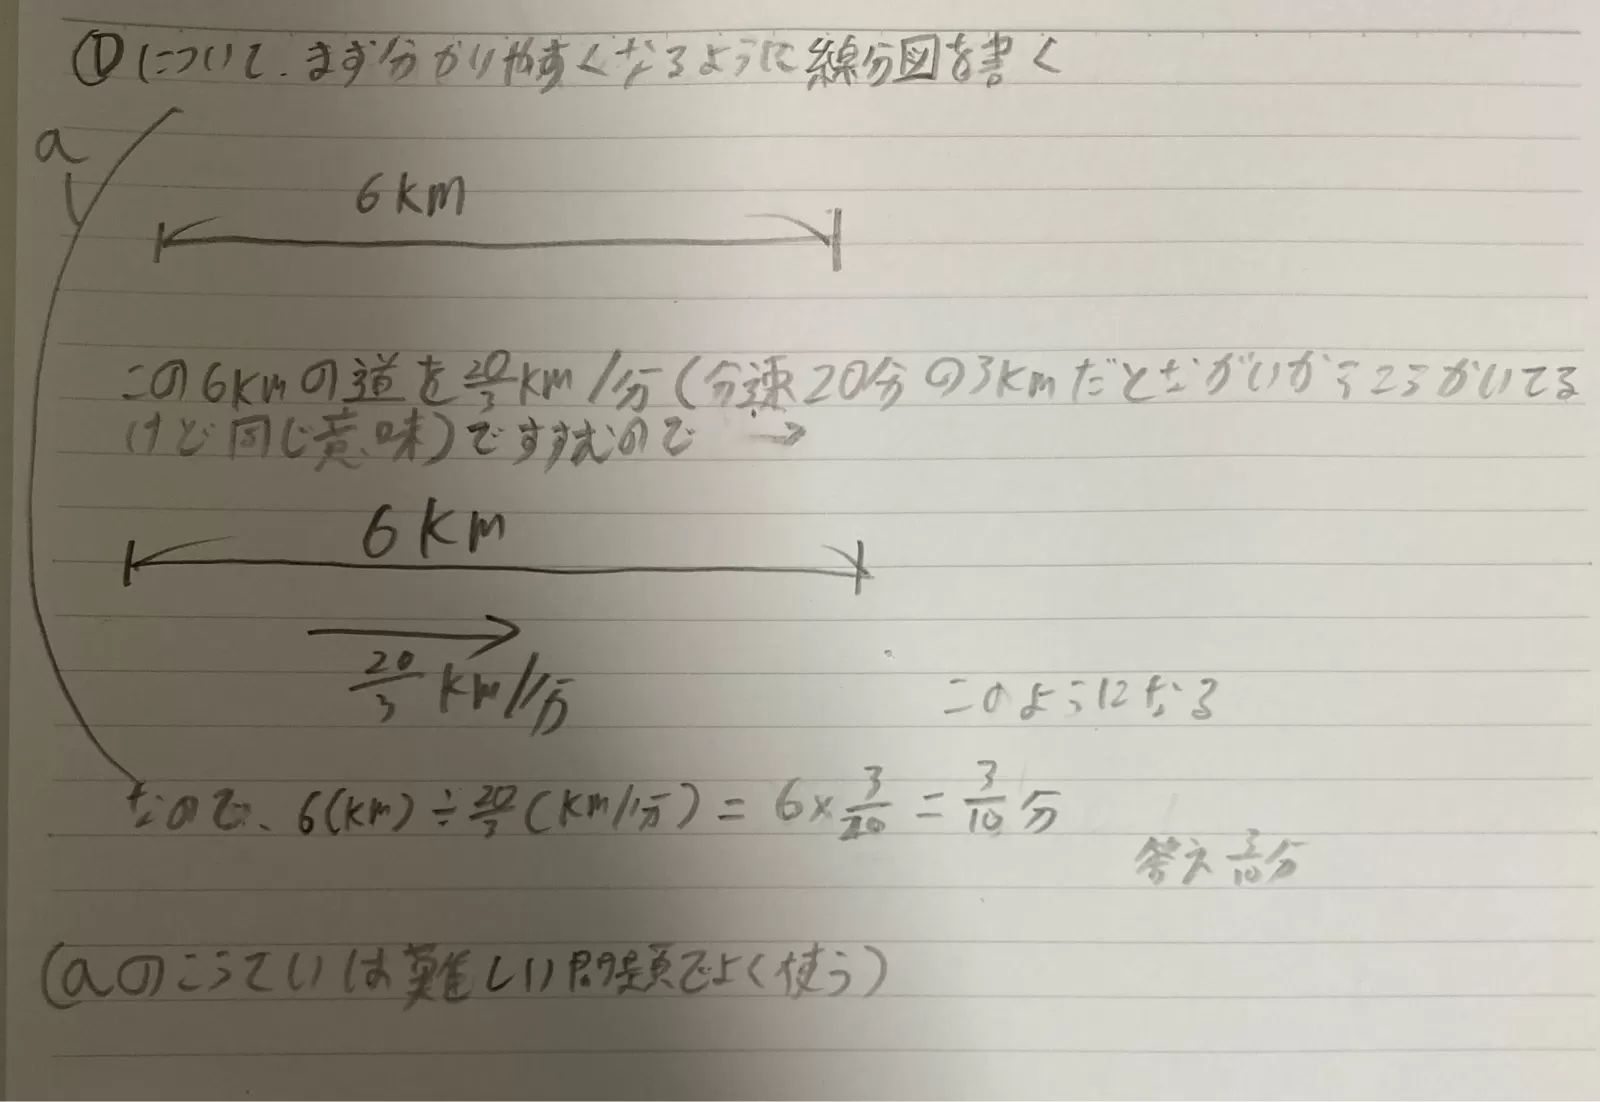 ①について、まず分かりやすくなるように線分図を書く
a
6km
この6kmの道を20/3km/分(分速20分の3kmだとながいからこうかいてる
けど同じ意味)ですすむので →
6km
20/3 km/分
このようになる
なので、6(km)÷20/3(km/分)=6×3/20=3/10分
答え 3/10分
(aのこうていは難しい問題でよく使う)